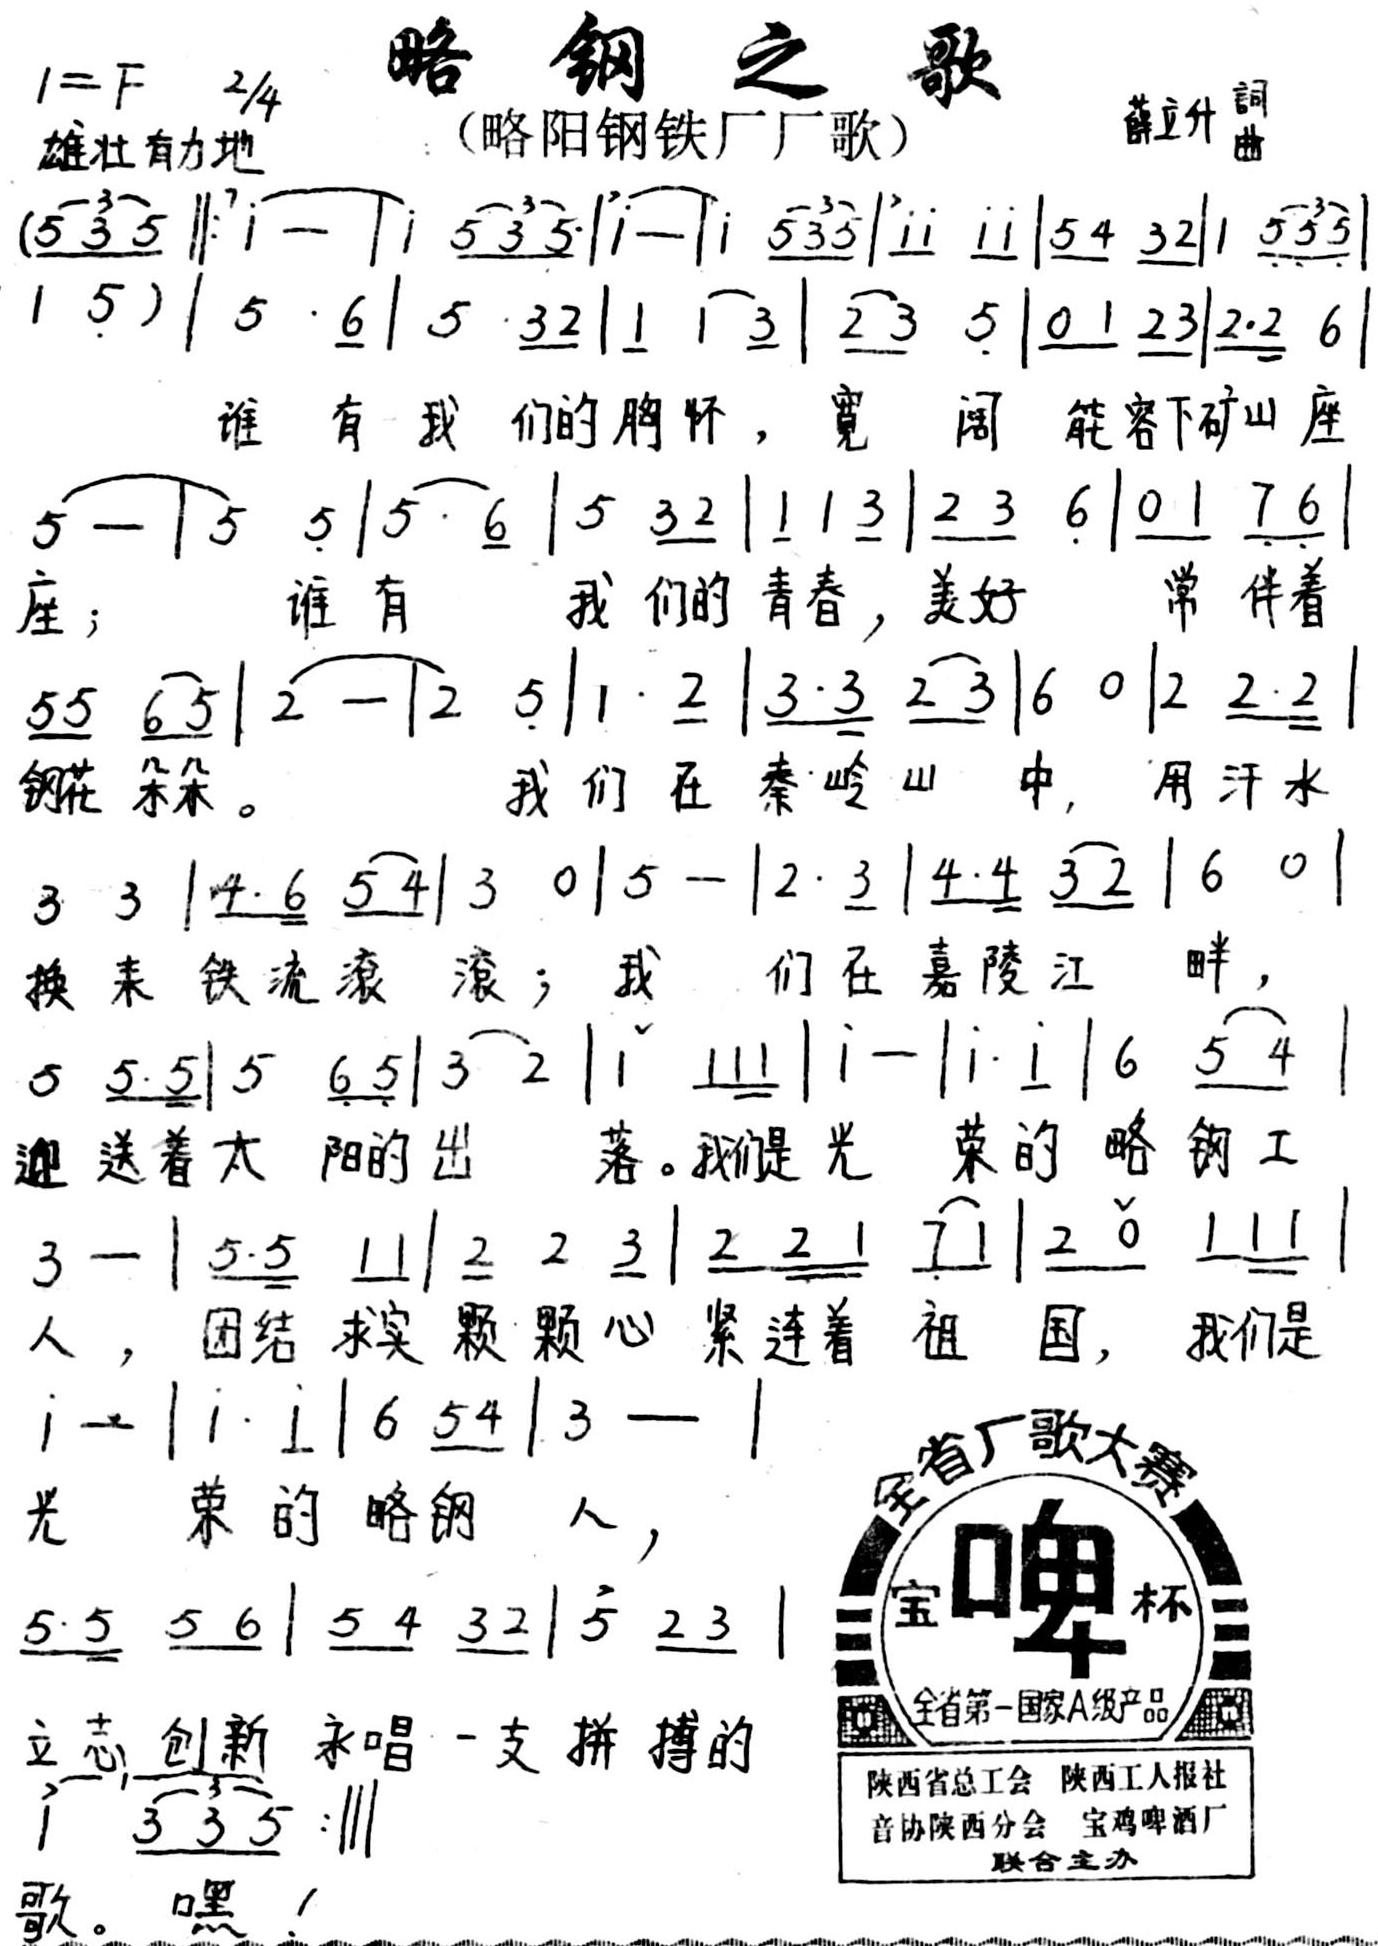 略 钢 之 歌
1=F 2/4
(略阳钢铁厂厂歌)
薛立升 詞曲
雄壮有力地
(5 3 5 ‖: i — | i 5 3 5 | i — | i 5 3 5 | i i i i | 5 4 3 2 | 1 5 5 5 |
1 5 ) | 5 · 6 | 5 · 3 2 | 1 1 3 | 2 3 5 | 0 1 2 3 | 2 · 2 6 |
谁 有 我 们的胸怀，宽 阔 能容下矿山座
5 — | 5 5 | 5 · 6 | 5 3 2 | 1 1 3 | 2 3 6 | 0 1 7 6 |
座； 谁有 我们的青春，美好 常伴着
5 5 6 5 | 2 — | 2 5 | 1 · 2 | 3 · 3 2 3 | 6 0 | 2 2 · 2 |
钢花 朵朵。 我们在秦岭山 中，用汗水
3 3 | 4 · 6 5 4 | 3 0 | 5 — | 2 · 3 | 4 · 4 3 2 | 6 0 |
换来铁流滚 滚；我 们在嘉陵江 畔，
5 5 · 5 | 5 6 5 | 3 2 | i 1 1 1 | i — | i · i | 6 5 4 |
迎送着太 阳的出 落。我们是光 荣的略钢工
3 — | 5 · 5 1 1 | 2 2 3 | 2 2 1 7 1 | 2 0 1 1 1 |
人，团结求实颗颗心紧连着 祖 国，我们是
i — | i · i | 6 5 4 | 3 — |
光 荣的略钢 人，
5 · 5 5 6 | 5 4 3 2 | 5 2 3 |
立志创新 永唱一支拼搏的
i 3 3 5 :‖
歌。嘿！
全省厂歌大赛
宝 啤 杯
全省第一国家A级产品
陕西省总工会 陕西工人报社
音协陕西分会 宝鸡啤酒厂
联合主办